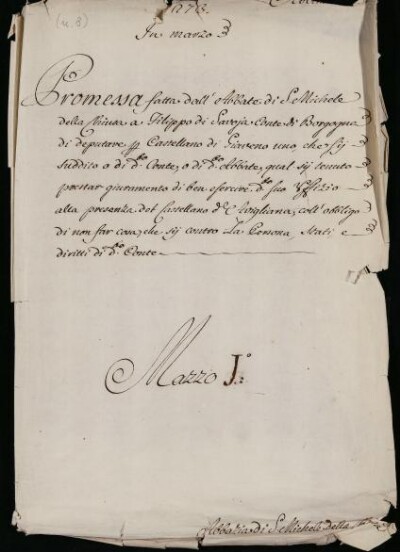 (n 8)
1278.
In marzo
Promessa fatta dall' Abbate di S. Michele
della Chiusa a Filippo di Savoja Conte di Borgogna
di deputare p Castellano di Giaveno uno che sij
suddito o di d.° Conte, o di d.° Abbate, qual sij tenuto
prestar giuramento di ben esercire d.° suo Uffizio
alla presenza del Castellano d' Avigliana, coll' obbligo
di non far cosa, che sij contro La Persona, Stati e
diritti di d.° Conte
Mazzo I.°
Abbazia di S. Michele della